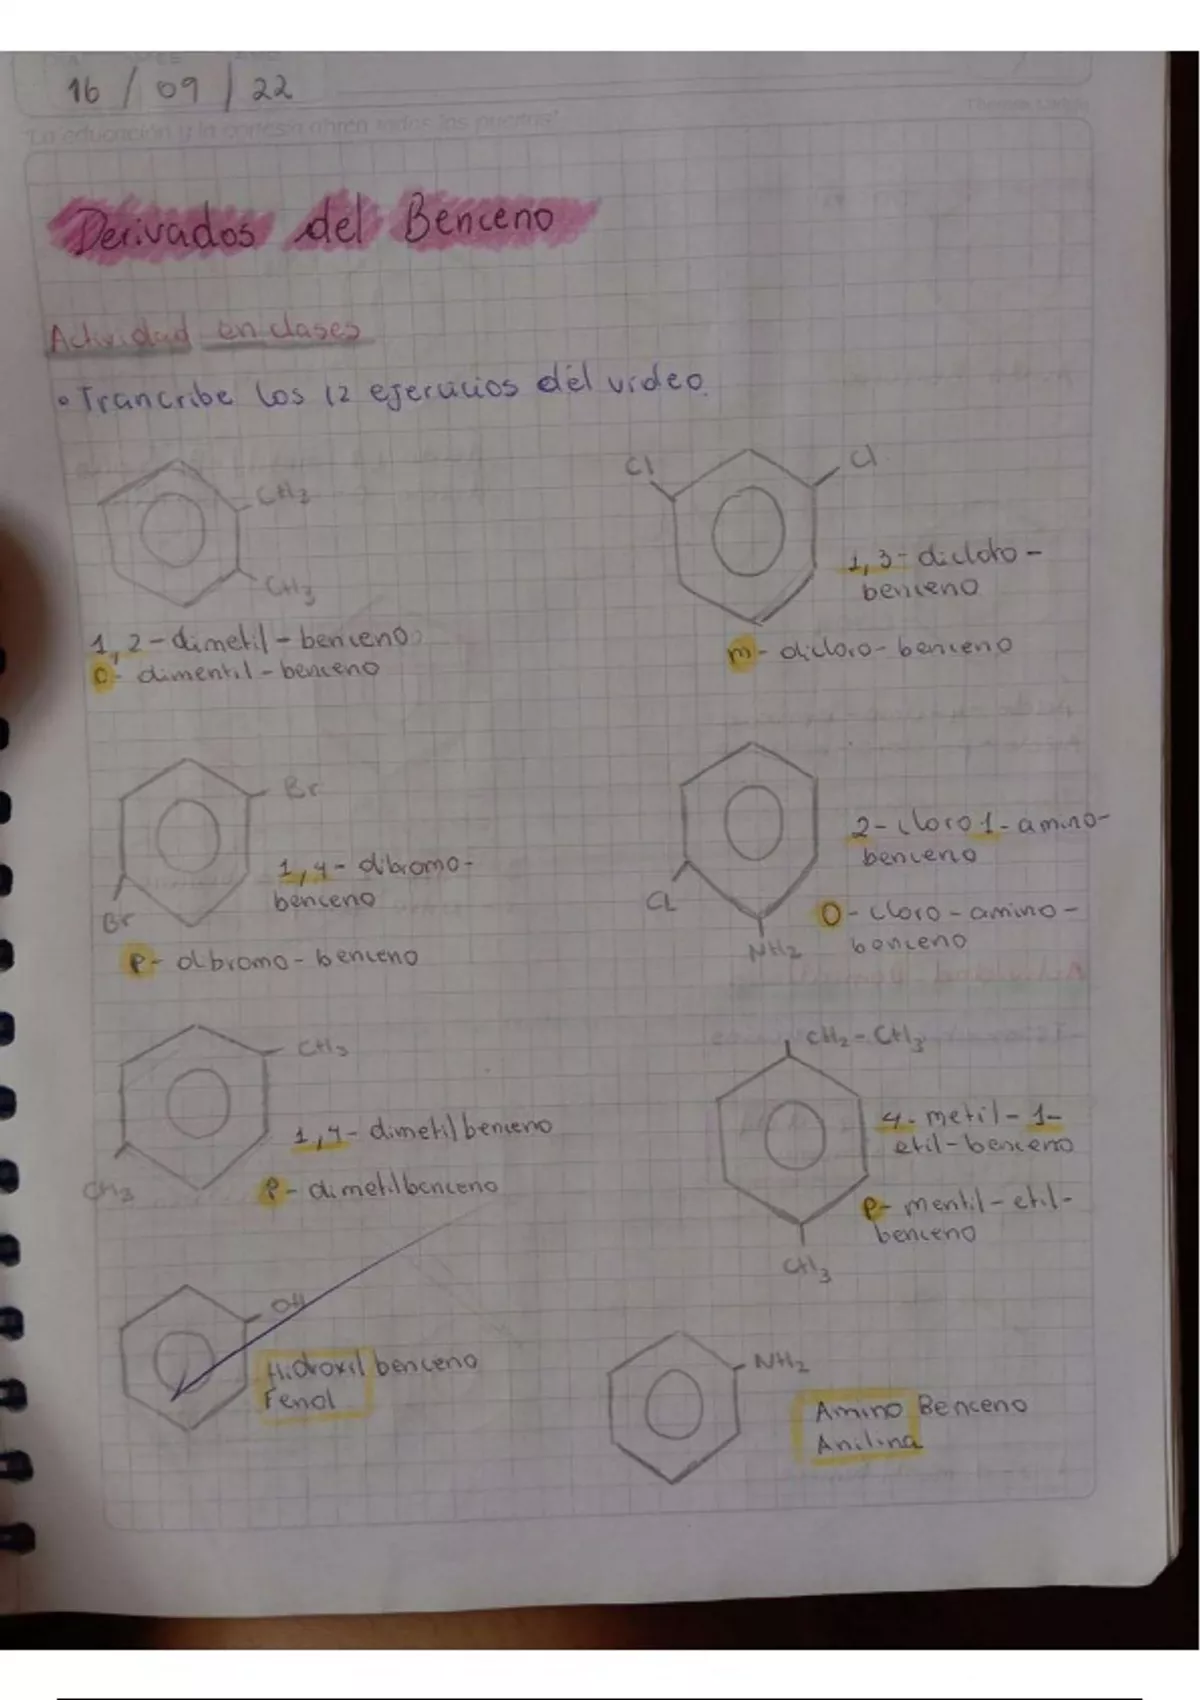 16 / 09 / 22
"La educación y la cortesía abren todas las puertas"
Derivados del Benceno
Actividad en clases
• Trancribe los 12 ejercicios del video.
CH3
CH3
1,2-dimetil-benceno
O- dimentil-benceno
Cl
Cl
1,3-dicloro-
benceno
m- dicloro-benceno
Br
Br
1,4-dibromo-
benceno
P- dibromo-benceno
Cl
NH2
2-cloro 1-amino-
benceno
O-cloro-amino-
benceno
CH3
CH3
1,4-dimetilbenceno
P-dimetilbenceno
CH2-CH3
CH3
4-metil-1-
etil-benceno
P-mentil-etil-
benceno
OH
Hidroxil benceno
Fenol
NH2
Amino Benceno
Anilina